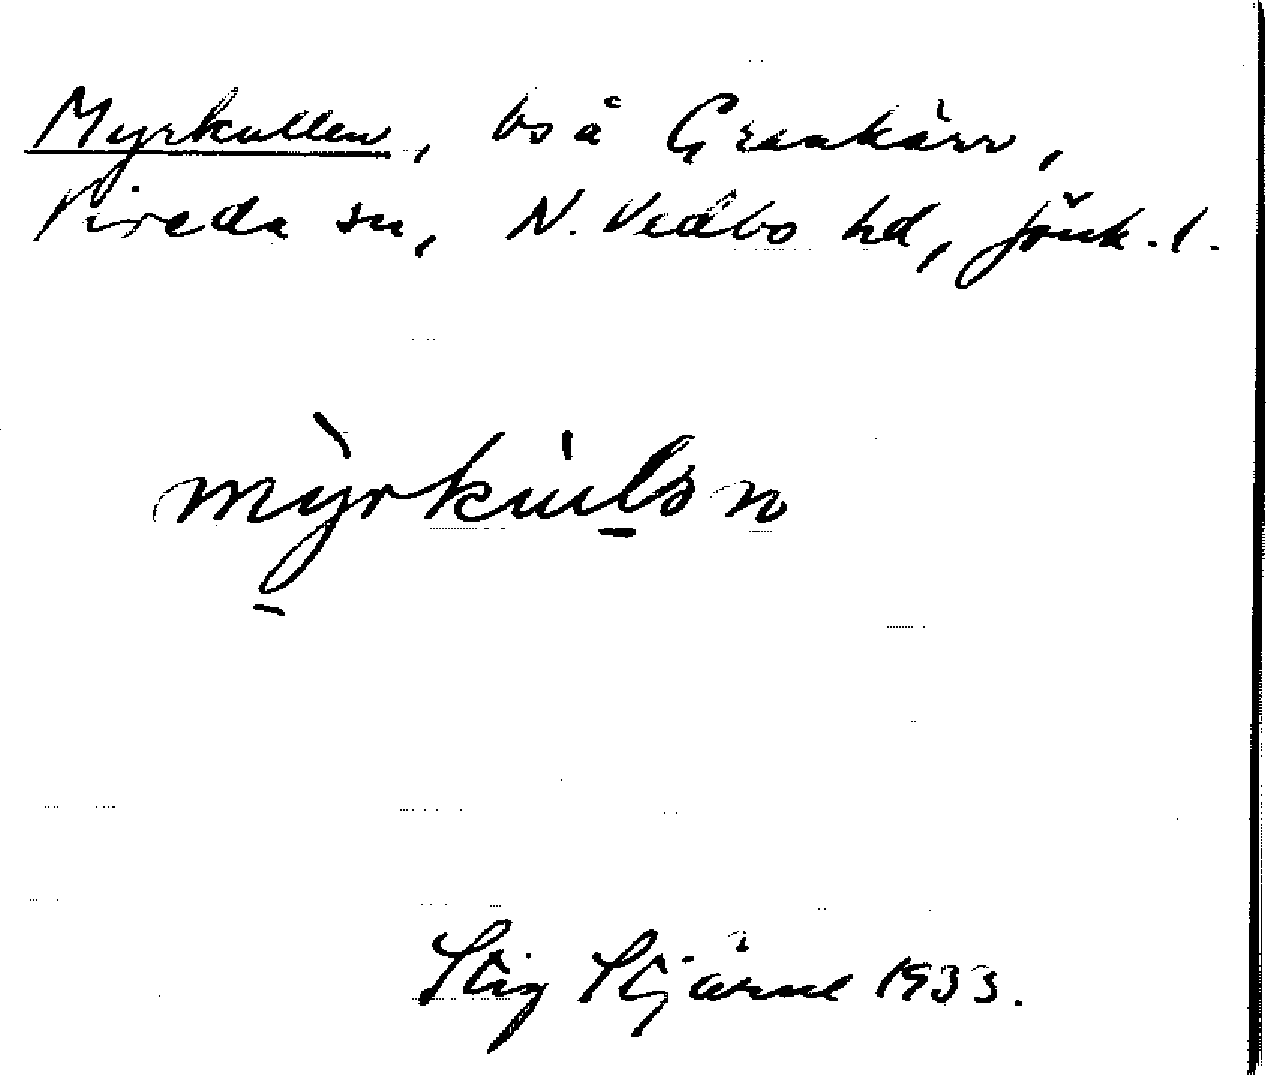 Myrkullen, bs å Grankärr,
Vireda sn, N. Vedbo hd, Jönk. l.
mỳrkúlən
Stig Stjärne 1933.